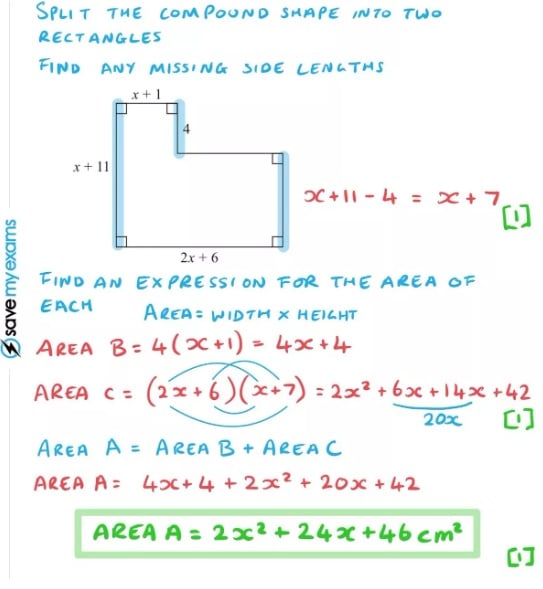 SPLIT THE COMPOUND SHAPE INTO TWO
RECTANGLES
FIND ANY MISSING SIDE LENGTHS
x + 1
4
x + 11
x+11-4 = x+7
[1]
2x + 6
FIND AN EXPRESSION FOR THE AREA OF
EACH AREA = WIDTH × HEIGHT
AREA B = 4(x+1) = 4x+4
AREA C = (2x+6)(x+7) = 2x² + 6x + 14x + 42
20x [1]
AREA A = AREA B + AREA C
AREA A = 4x+4 + 2x² + 20x + 42
AREA A = 2x² + 24x + 46 cm²
[1]
save my exams